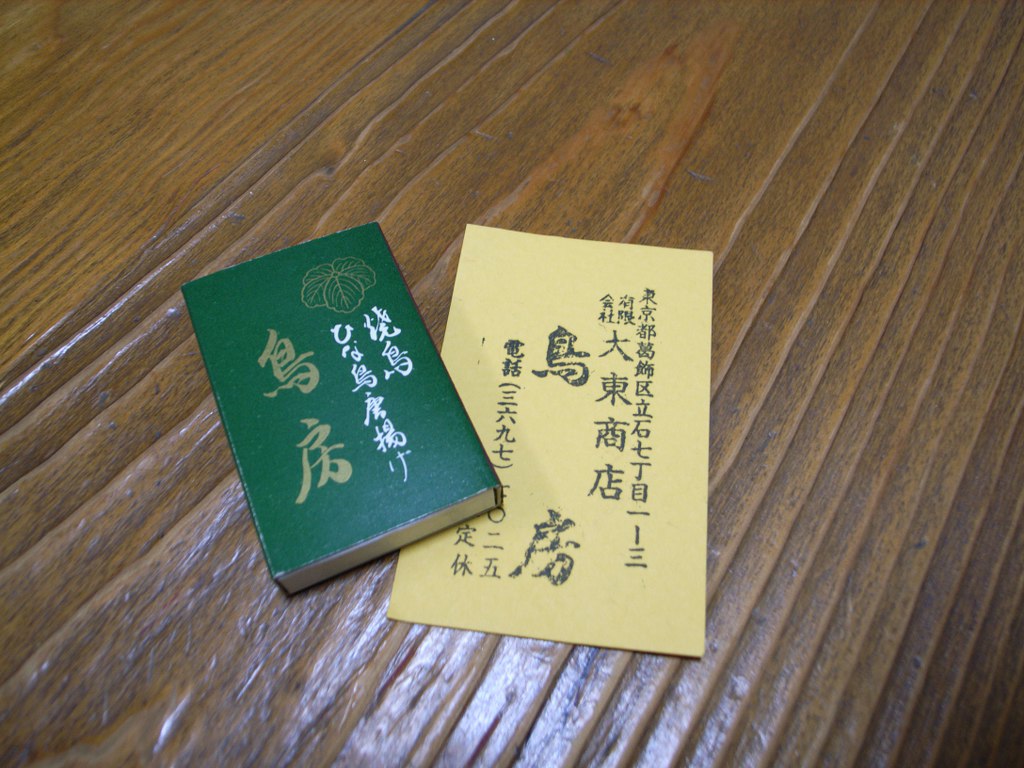 焼鳥
ひな鳥唐揚げ
鳥房
東京都葛飾区立石七丁目一ー三
有限会社
大東商店
鳥房
電話(三六九七)
〇二五
定休